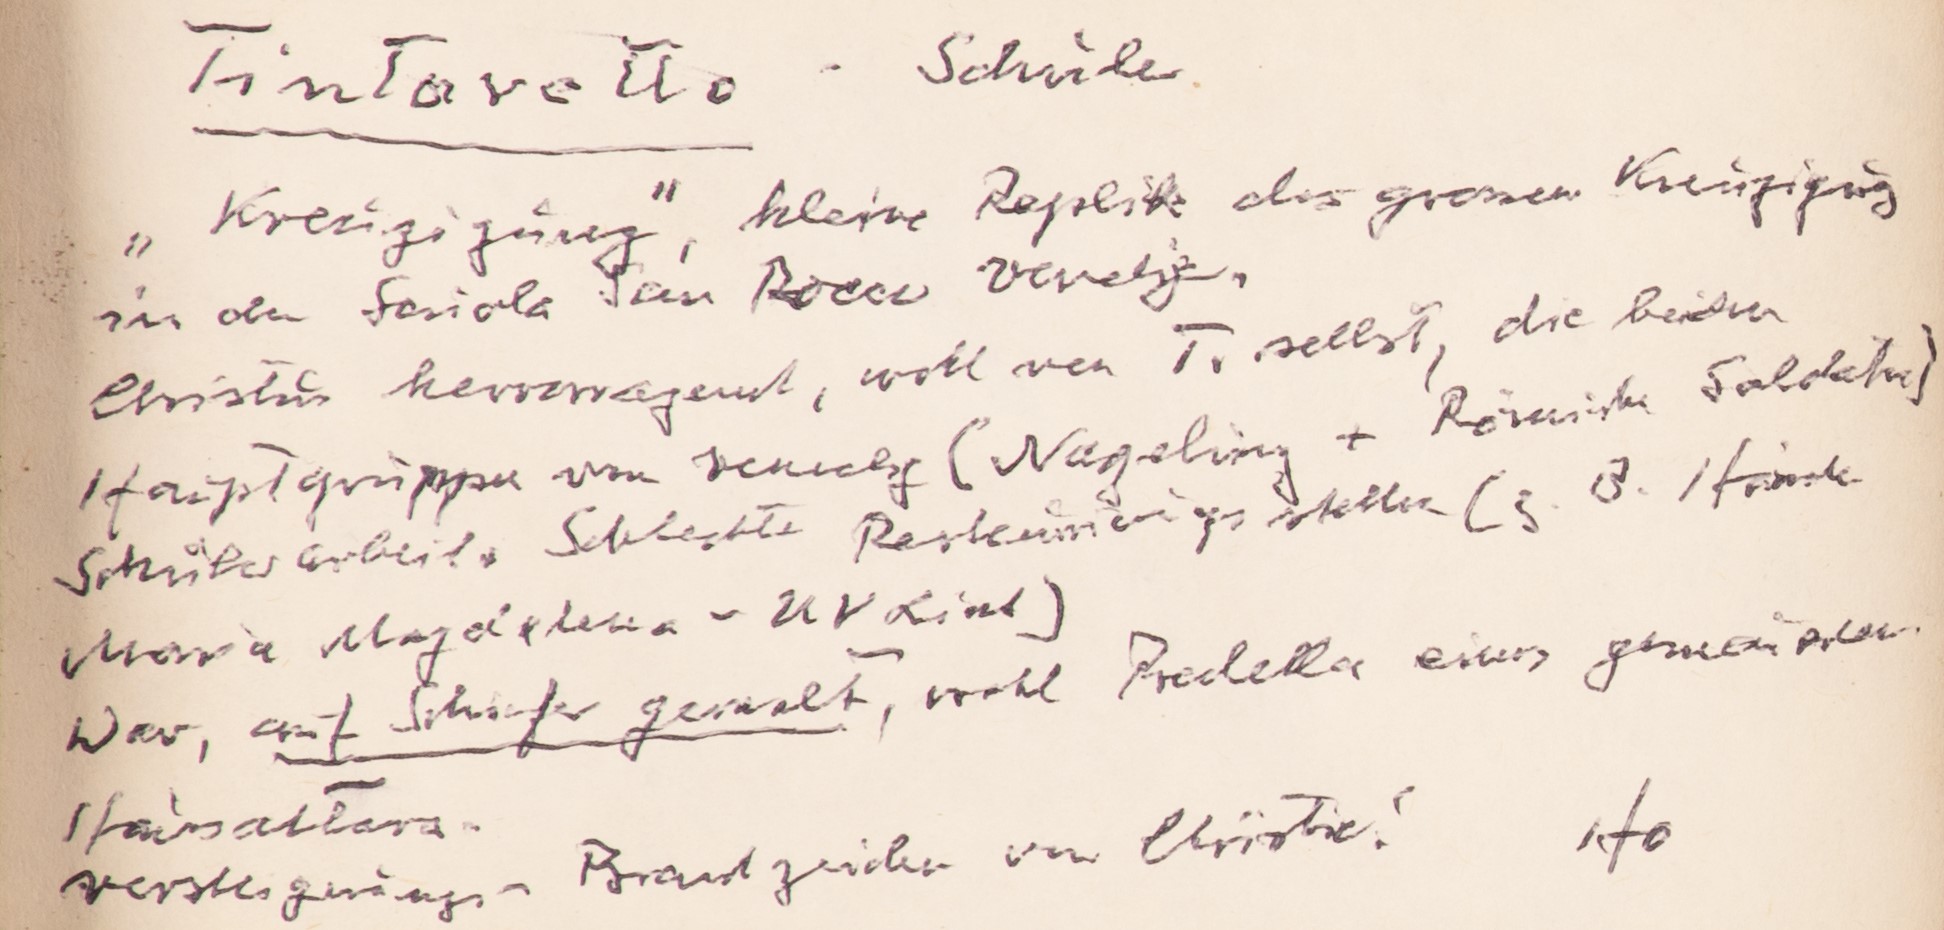 Tintoretto - Schüler
„Kreuzigung", kleine Replik der grossen Kreuzigung
in der Scuola San Rocco Venedig.
Christus hervorragend, wohl von T. selbst, die beiden
Hauptgruppen von (Nagelung + Römische Soldaten)
Schülerarbeit. Schlechte Restaurierungsstellen (z. B. Hände
Maria Magdalena - UV Licht)
War, auf Schiefer gemalt, wohl Predella eines
Hausaltars.
Versteigerungs- Brandzeichen von Christie!